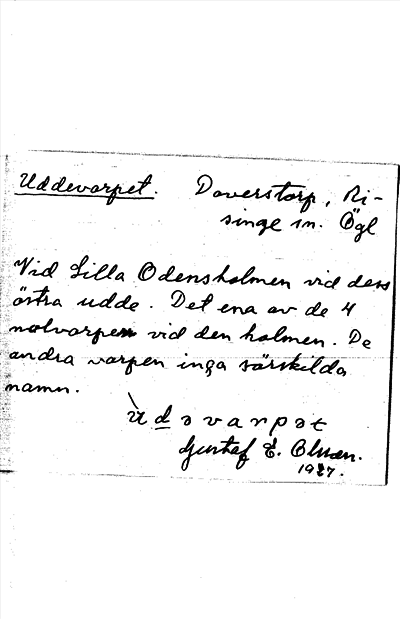 Uddevarpet. Daverstorp, Ri-
singe sn. Ögl
Vid Lilla Odensholmen vid dess
östra udde. Det ena av de 4
notvarpen vid den holmen. De
andra varpen inga särskilda
namn.
ùdəvarpət
Gustaf E. Olsson.
1927.